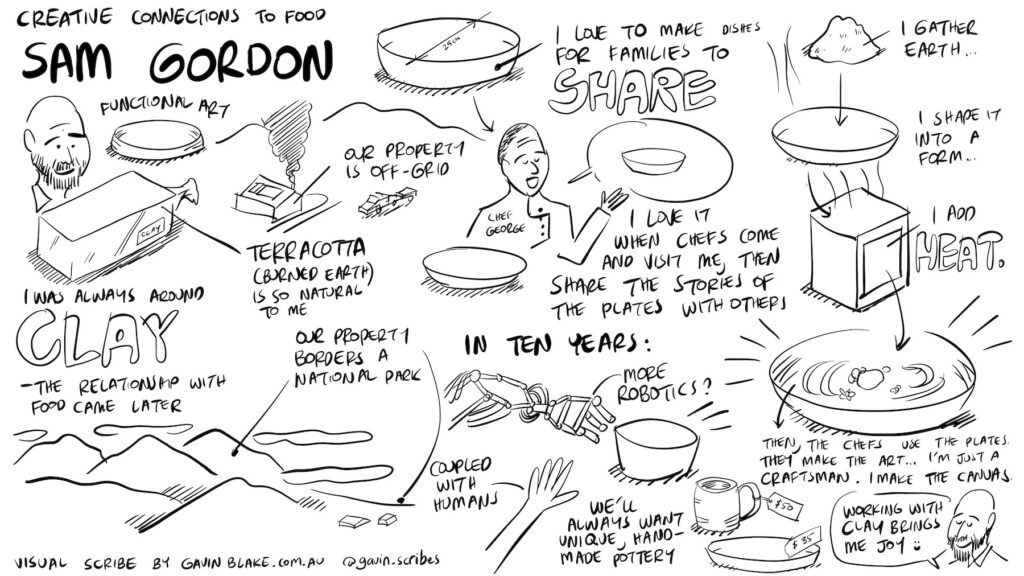 CREATIVE CONNECTIONS TO FOOD
SAM GORDON
FUNCTIONAL ART
CLAY
25CM
I LOVE TO MAKE DISHES
FOR FAMILIES TO
SHARE
OUR PROPERTY
IS OFF-GRID
TERRACOTTA
(BURNED EARTH)
IS SO NATURAL
TO ME
I WAS ALWAYS AROUND
CLAY
-THE RELATIONSHIP WITH
FOOD CAME LATER
OUR PROPERTY
BORDERS A
NATIONAL PARK
CHEF
GEORGE
I LOVE IT
WHEN CHEFS COME
AND VISIT ME, THEN
SHARE THE STORIES OF
THE PLATES WITH OTHERS
I GATHER
EARTH...
I SHAPE IT
INTO A
FORM...
I ADD
HEAT.
THEN, THE CHEFS USE THE PLATES.
THEY MAKE THE ART... I'M JUST A
CRAFTSMAN. I MAKE THE CANVAS.
IN TEN YEARS:
MORE
ROBOTICS?
COUPLED
WITH
HUMANS
WE'LL
ALWAYS WANT
UNIQUE, HAND-
MADE POTTERY
$50
$35
WORKING WITH
CLAY BRINGS
ME JOY
VISUAL SCRIBE BY GAVINBLAKE.COM.AU @gavin_scribes